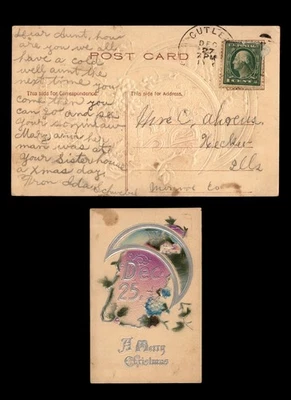 Dear Aunt, how
are you we all
have a cold
well aunt the
next time you
come then you
can go and see
your
Mary
man was at
your Sister house
a Xmas day
From Ida
POST CARD
This side for Correspondence.
This side for Address.
CUTLER
DEC
27
Mrs C.
Ills
Monroe Co
Dec.
25.
A Merry
Christmas